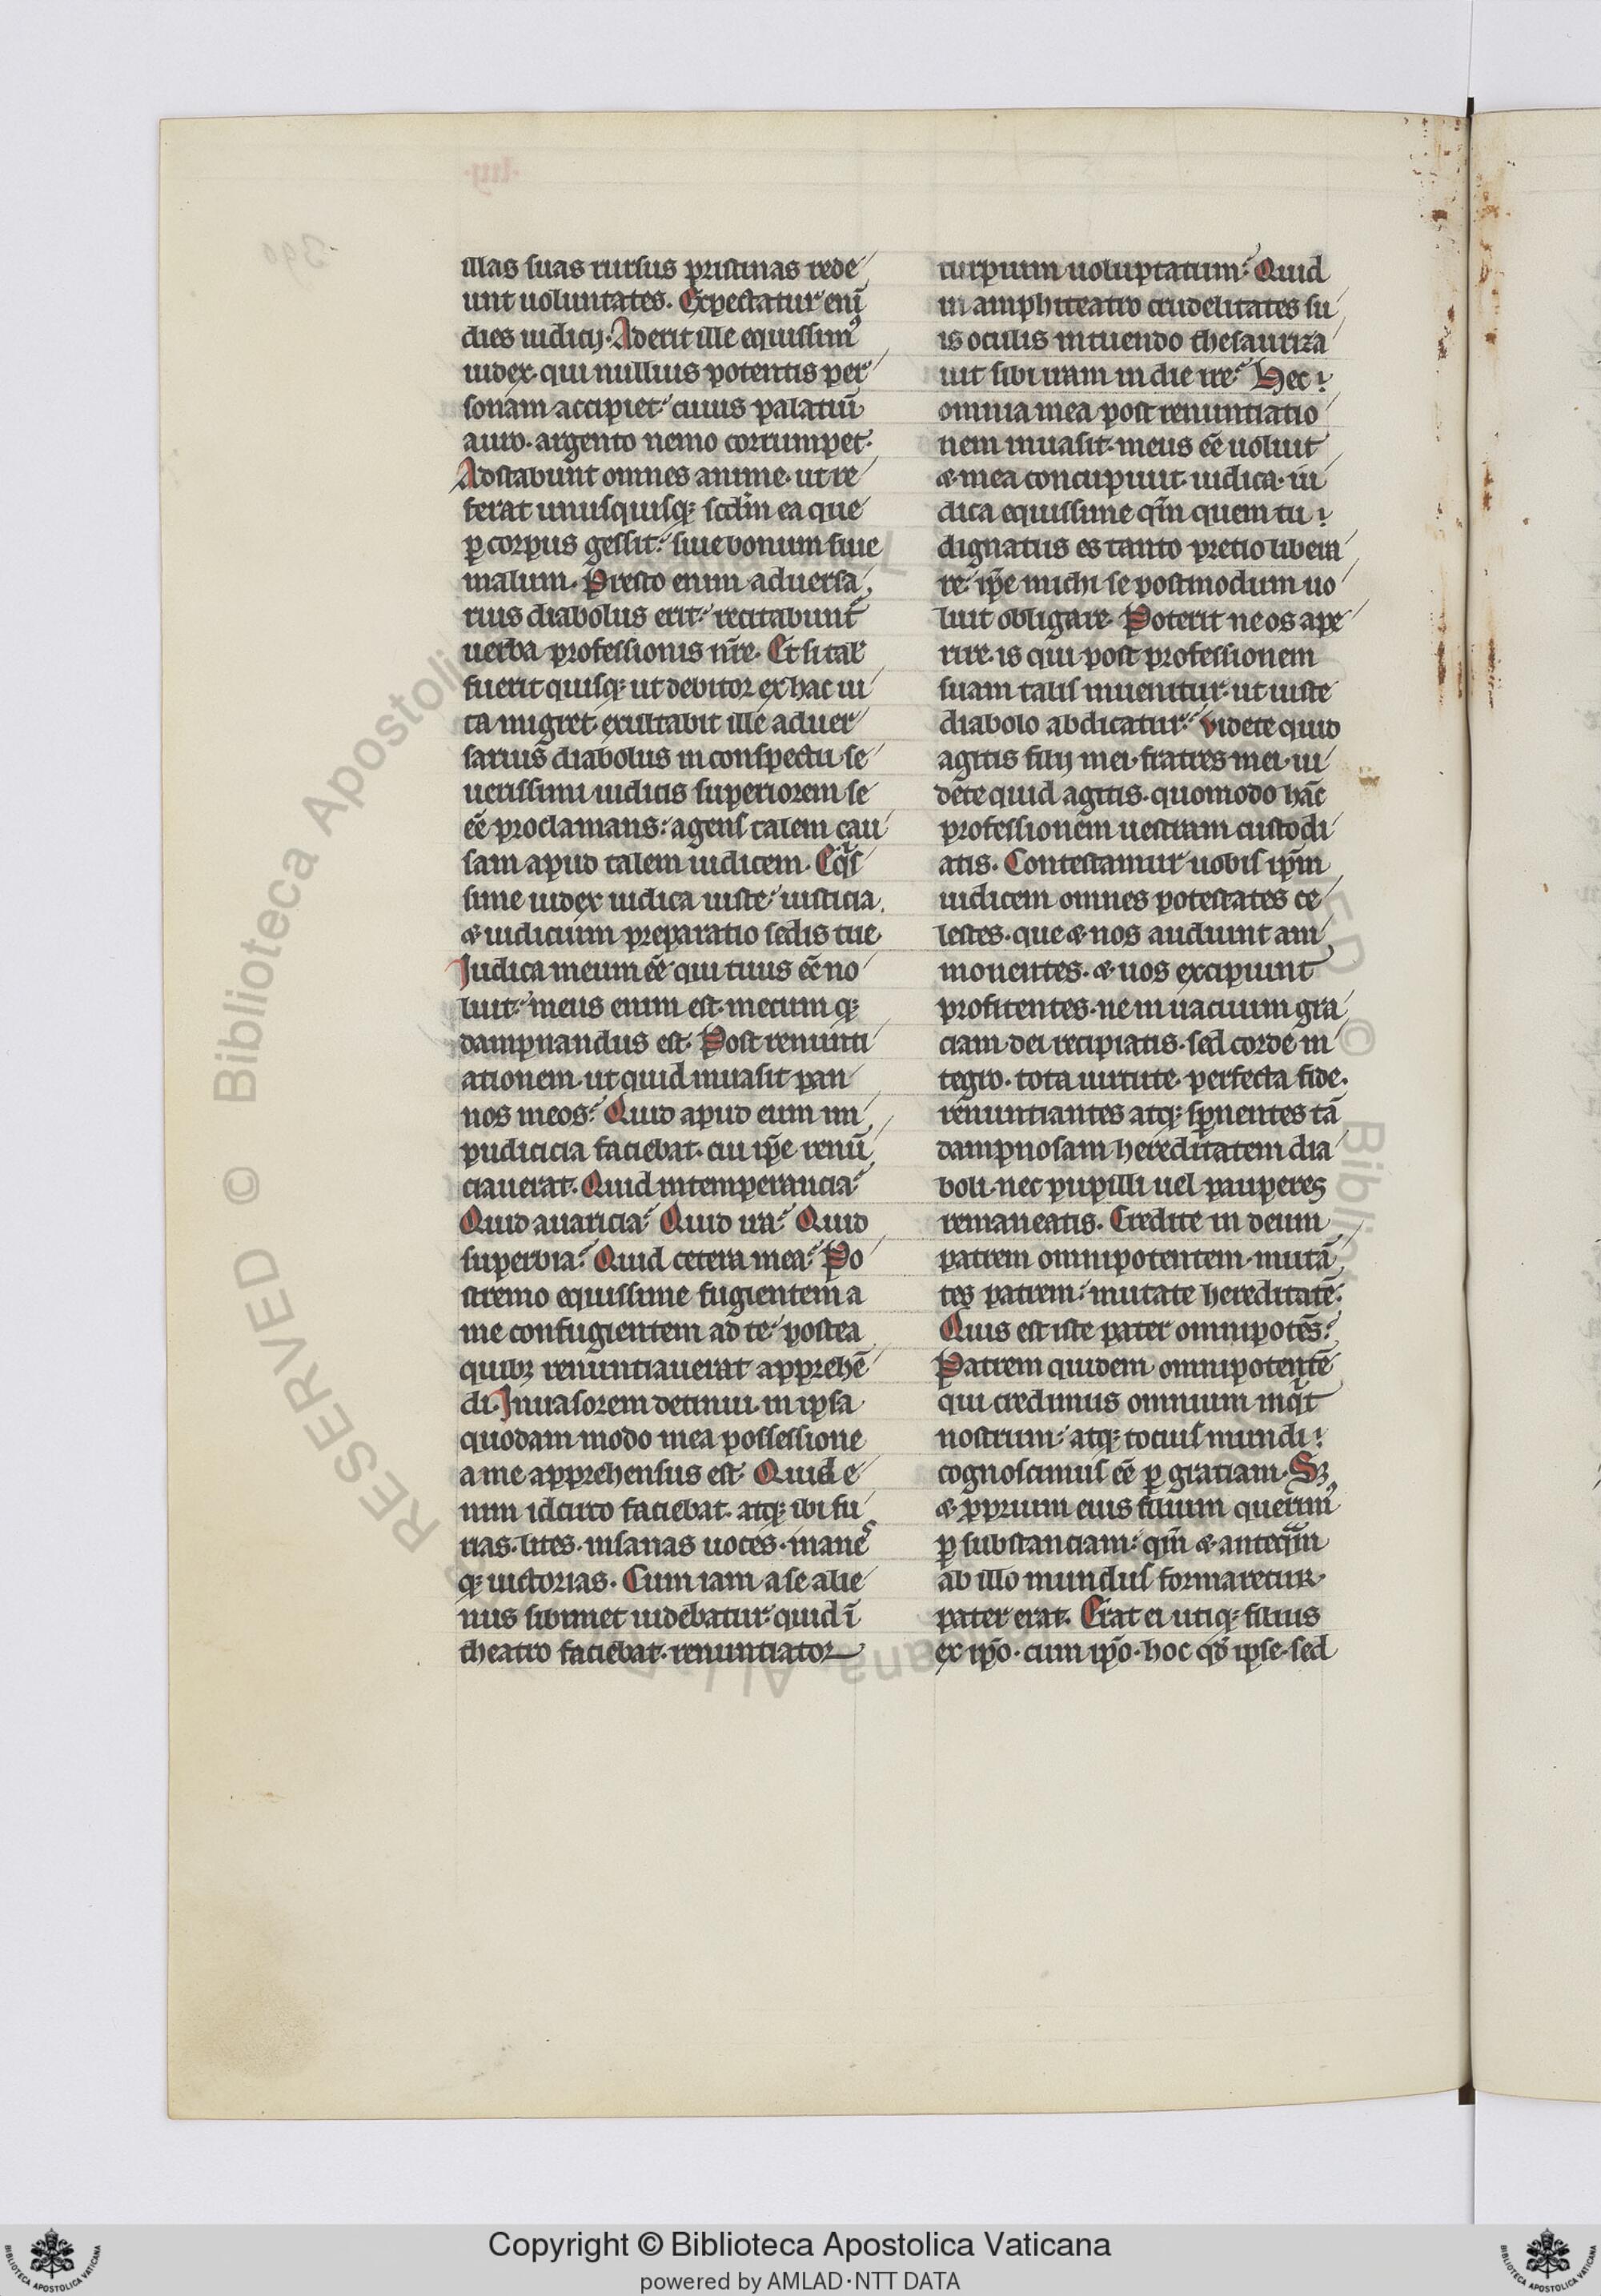 illas suas rursus pristinas rede
unt uoluntates. Expectatur enī
dies iudicij. Aderit ille equissimꝰ
iudex. qui nullius potentis per
sonam accipiet. cuius palatiū
auro. argento nemo corrumpet.
Adstabunt omnes anime. ut re
ferat unusquisqꝫ scdm̄ ea que
ꝑ corpus gessit. siue bonum siue
malum. Presto enim aduersa
rius diabolus erit. recitabunt̄
uerba professionis nr̄e. Et si tal'
fuerit quisqꝫ ut debitor ex hac ui
ta migret. exultabit ille aduer
sarius diabolus in conspectu se
uerissimi iudicis superiorem se
eē proclamans. agens talem cau
sam apud talem iudicem. Eq̄s
sime iudex iudica iuste. iusticia
& iudicium preparatio sedis tue.
Judica meum eē qui tuus eē no
luit. meus enim est. mecum qꝫ
dampnandus est. Post renunti
ationem. ut quid inuasit pan
nos meos? Quid apud eum im
pudicicia faciebat. cui ip̄e renū
ciauerat. Quid intemperancia?
Quid auaricia? Quid ira? Quid
superbia? Quid cetera mea? Po
stremo equissime fugientem a
me confugientem ad te. postea
quibꝫ renuntiauerat apprehē
di. Inuasorem detinui. in ipsa
quodam modo mea possessione
a me apprehensus est. Quid e
nim idcirco faciebat. atqꝫ ibi fu
rias. lites. insanas uoces. mane
qꝫ uictorias. Cum iam a se alie
nus sibimet uidebatur. quid ī
theatro faciebat. renuntiator
turpium uoluptatum? Quid
in amphiteatro crudelitates su
is oculis intuendo thesauriza
uit sibi iram in die ire? Hec
omnia mea post renuntiatio
nem inuasit. meus eē uoluit
& mea concupiuit. iudica. iu
dica equissime qm̄ quem tu
dignatus es tanto pretio libera
re. ip̄e michi se postmodum uo
luit obligare. Poterit ne os ape
rire. is qui post professionem
suam talis inuenitur. ut iuste
diabolo abdicatur? Videte quid
agitis filij mei. fratres mei. ui
dete quid agitis. quomodo hāc
professionem uestram custodi
atis. Contestamur uobis ip̄m
iudicem omnes potestates ce
lestes. que & nos audiunt am
monentes. & uos excipiunt
profitentes. ne in uacuum gra
ciam dei recipiatis. sed corde in
tegro. tota uirtute. perfecta fide.
renuntiantes atqꝫ spernentes tā
dampnosam hereditatem dia
boli. nec pupilli uel pauperes
remaneatis. Credite in deum
patrem omnipotentem. mutā
tes patrem. mutate hereditatē.
Quis est iste pater omnipotēs?
Patrem quidem omnipotentē
qui credimus omnium inqͥt
nostrum. atqꝫ tocius mundi
cognoscimus eē ꝑ gratiam. Sꝫ
& ꝓprium eius filium querimꝰ
ꝑ substanciam. qm̄ & anteqͣm
ab illo mundus formaretur.
pater erat. Erat ei utiqꝫ filius
ex ip̄o. cum ip̄o. hoc qd̄ ipse. sed
RESERVED © Biblioteca Apostolica
Copyright © Biblioteca Apostolica Vaticana
powered by AMLAD·NTT DATA
BIBLIOTECA APOSTOLICA VATICANA
BIBLIOTECA APOSTOLICA VATICANA